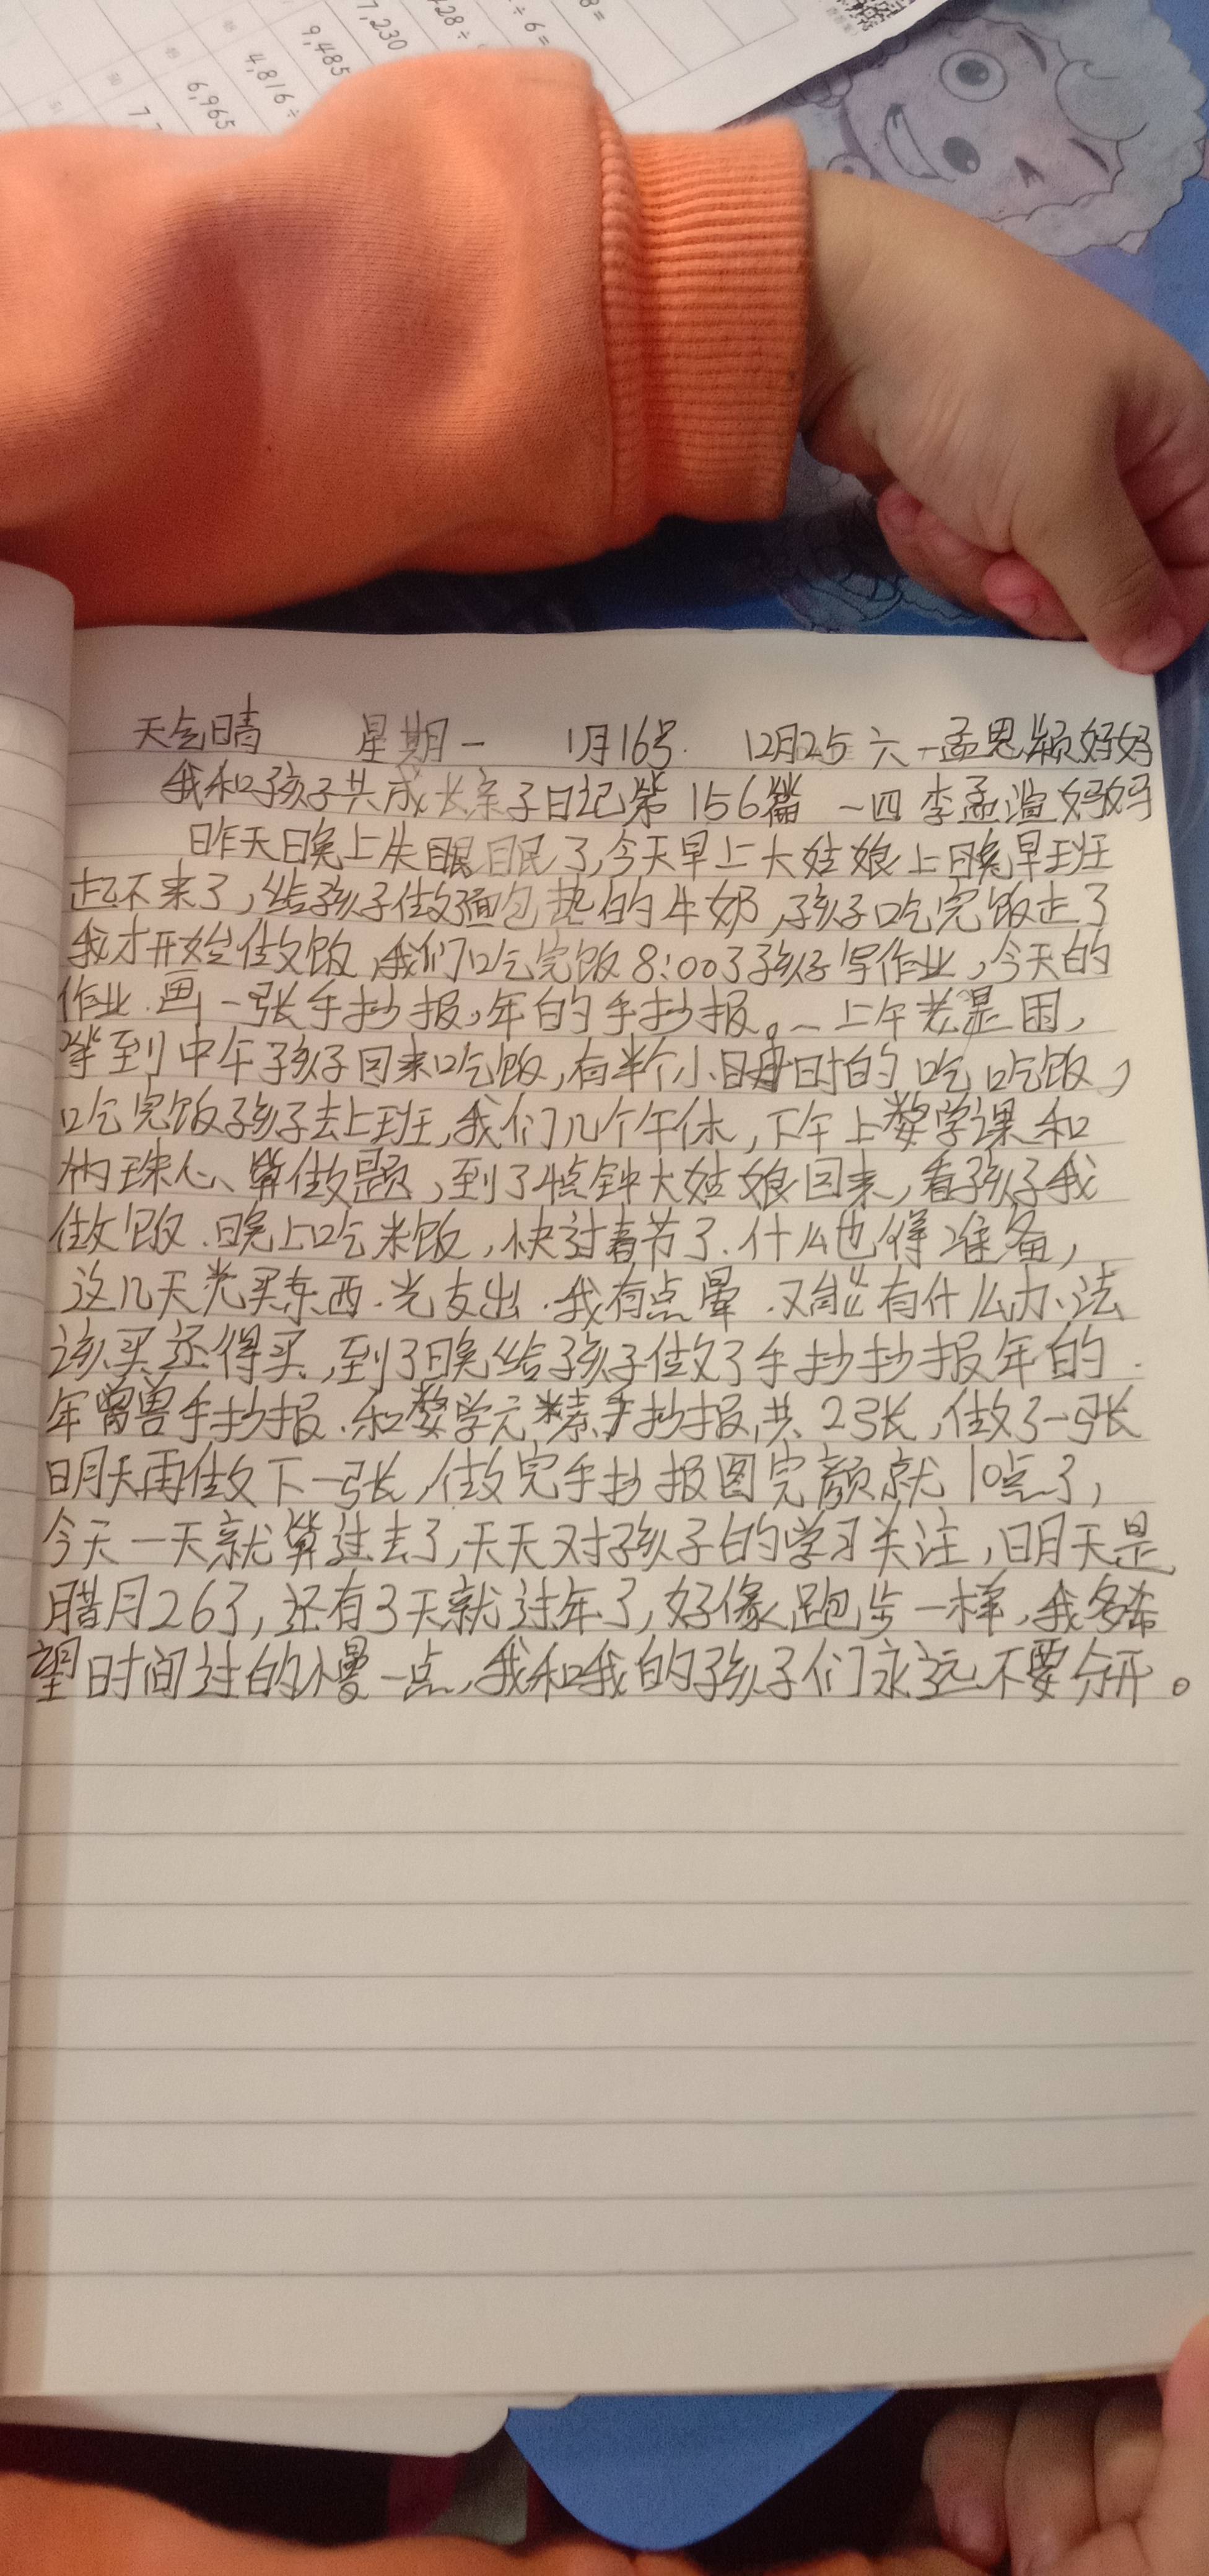 8=
÷6=
428÷
7,230
9,485
4,816÷
6,965
天气晴 星期一 1月16号. 12月25 六一孟思颖妈妈
我和孩子共成长亲子日记第156篇 一四李孟 妈妈
昨天晚上失眼眠了,今天早上大姑娘上晚早班
起不来了,给孩子做面包热的牛奶,孩子吃完饭走了
我才开始做饭,我们吃完饭8:00了孩子写作业,今天的
作业.画一张手抄报,年的手抄报。一上午老是困,
等到中午孩子回来吃饭,有半个小 时的吃吃饭,
吃完饭孩子去上班,我们几个午休,下午上数学课和
珠心、算做题,到了4点钟大姑娘回来,看孩子我
做饭.晚上吃米饭,快过春节了.什么也得准备,
这几天光买东西.光支出.我有点晕.又能有什么办法
该买还得买,到了晚给孩子做了手抄抄报年的.
年兽手抄报.和数学元素手抄报,共2张,做了一张
明天再做下一张,做完手抄报图完颜就10点了,
今天一天就算过去了,天天对孩子的学习关注,明天是
腊月26了,还有3天就过年了,好像跑步一样,我多希
望时间过的慢一点,我和我的孩子们永远不要分开。